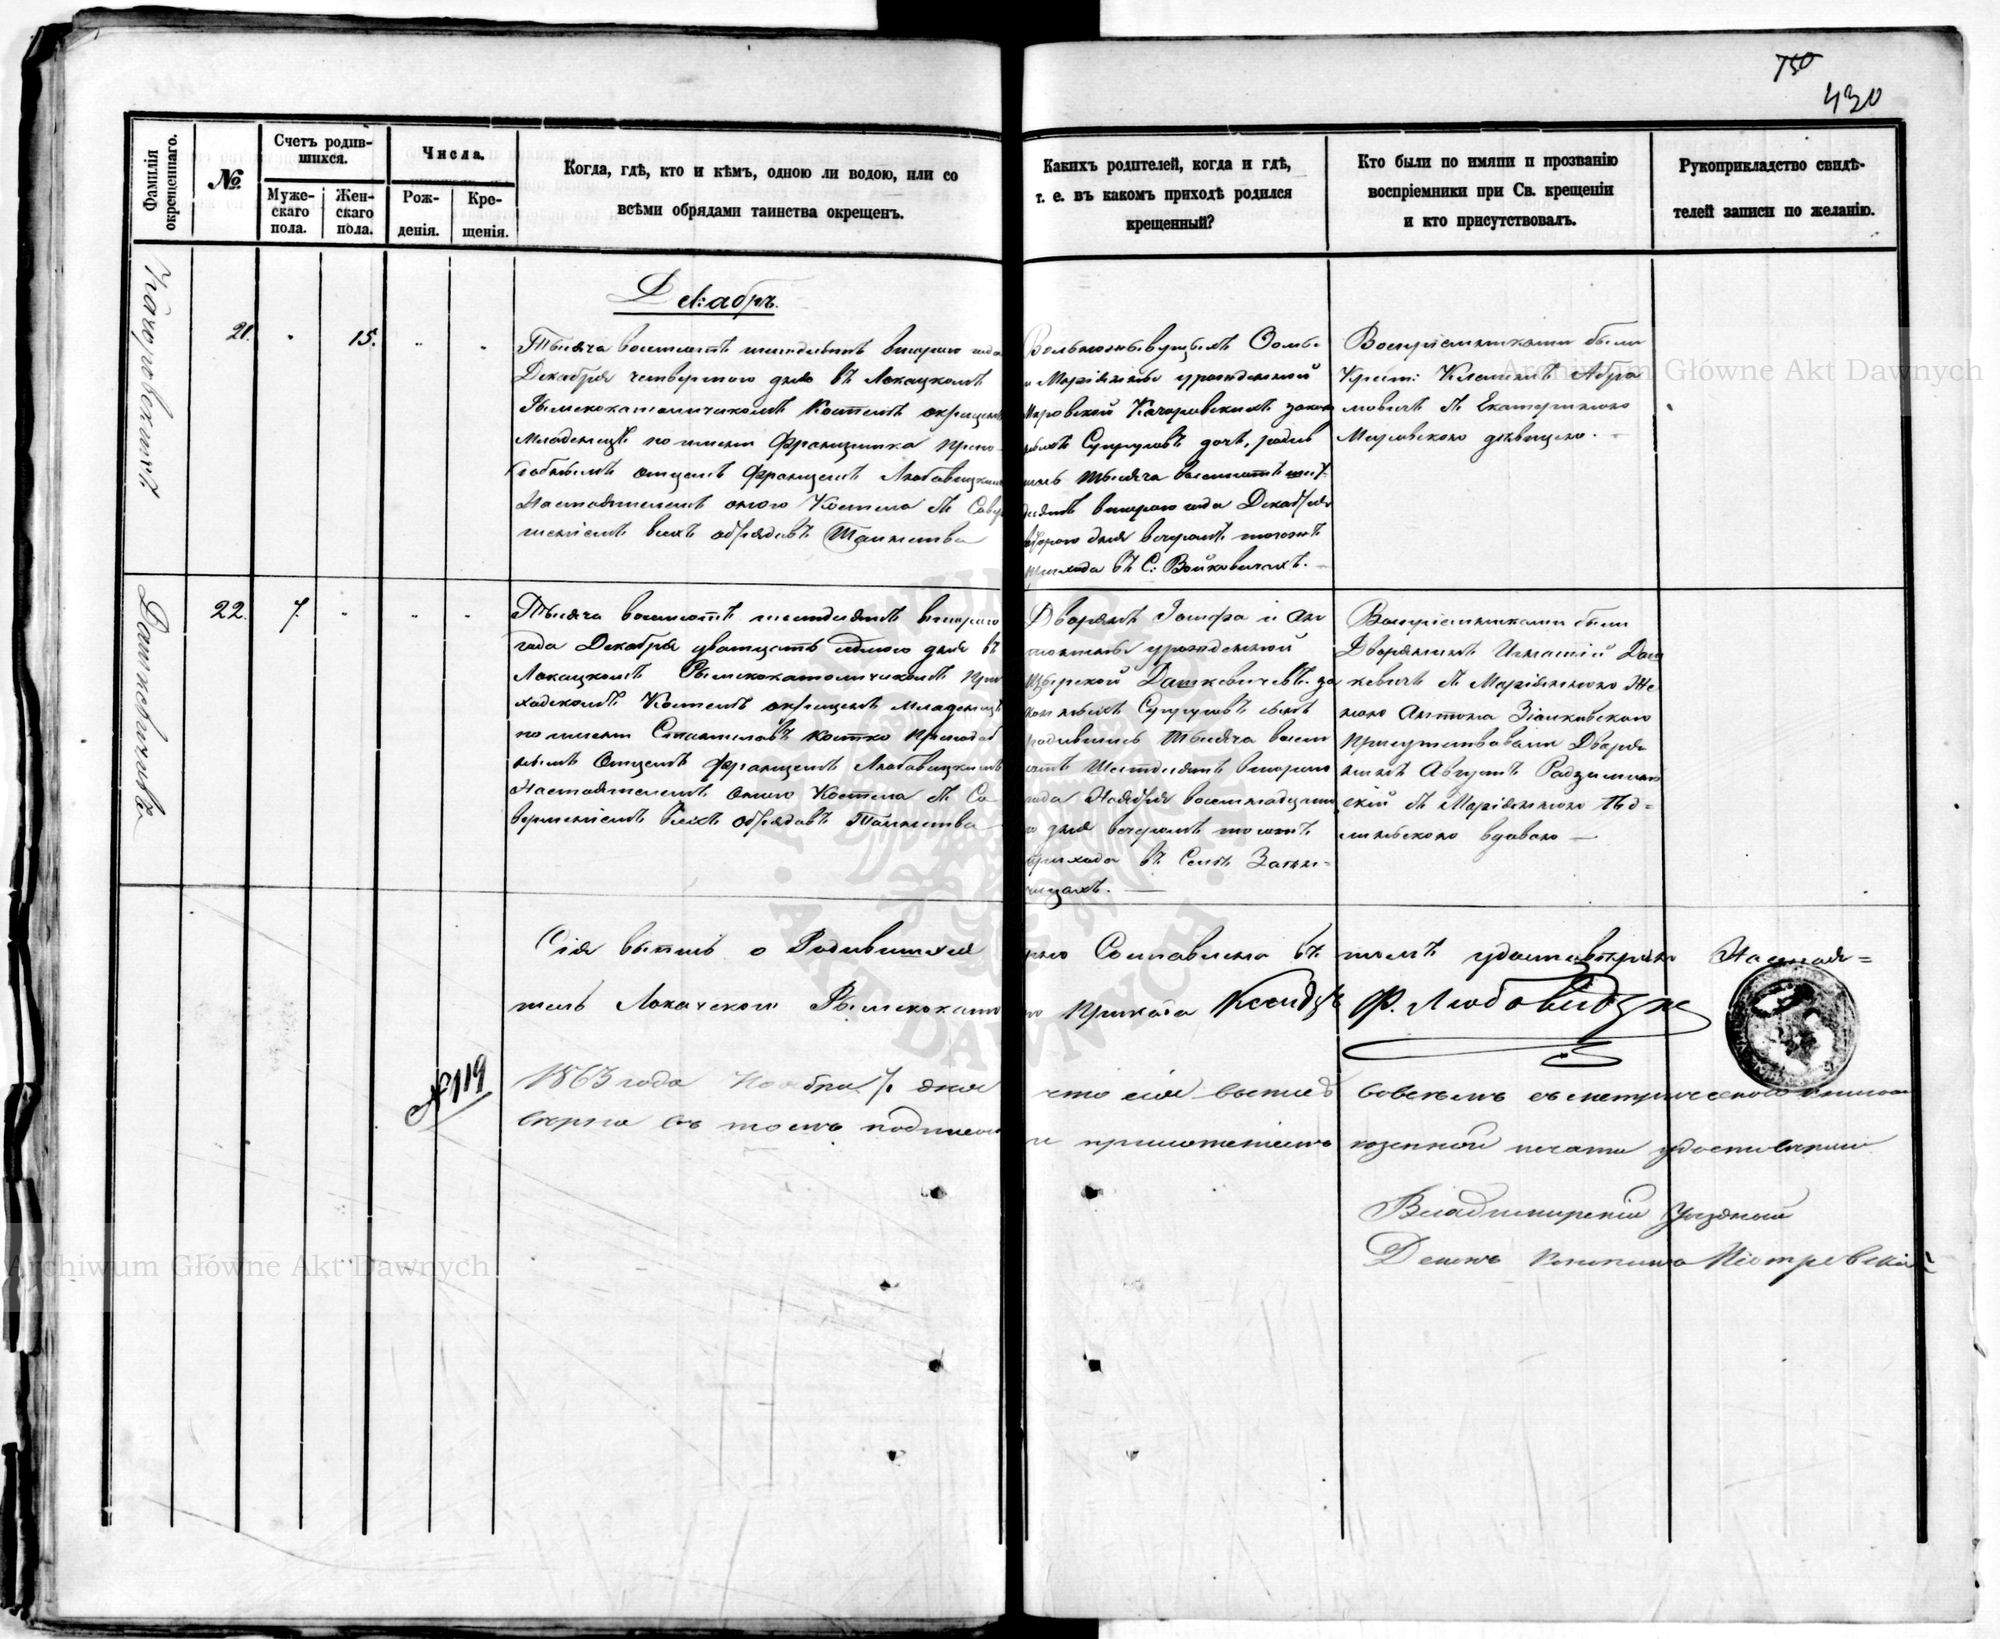 750
430
Фамилія окрещеннаго.
№.
Счетъ родив-
шихся.
Муже-
скаго
пола.
Жен-
скаго
пола.
Числа.
Рож-
денія.
Кре-
щенія.
Когда, гдѣ, кто и кѣмъ, одною ли водою, или со
всѣми обрядами таинства окрещенъ.
Какихъ родителей, когда и гдѣ,
т. е. въ какомъ приходѣ родился
крещенный?
Кто были по имяни и прозванію
воспріемники при Св. крещеніи
и кто присутствовалъ.
Рукоприкладство свидѣ-
телей записи по желанію.
Декабрь.
21.
15.
Тысяча восемсотъ шестдесятъ втораго года
Декабря четвертого дня въ Локацкомъ
Рымскокатолическомъ Костелѣ окрещена
Младенецъ по имени Францишка Препо-
добнымъ отцемъ Францемъ Любовицкимъ
Настоятелемъ оного Костела съ Совер
шеніемъ всѣхъ обрядовъ Таинства
Вольноживущихъ Оомы
и Маріянны урожденной
Маровской Качоровскихъ закон
ныхъ Супруговъ дочь, родив
шаясь тысяча восемсотъ шест
десятъ втораго года Декабря
втораго дня вечеромъ тогожъ
прихода въ С. Войковичахъ.
Воспріемниками были
Крест: Клеменсъ Абра
мовичъ съ Екатериною
Маровскою дѣвицею.
Дашкевичовъ
22.
7.
Тысяча восемсотъ шестдесятъ втораго
года Декабря дватцать одного дня въ
Локацкомъ Рымскокатолическомъ При
ходскомъ Костелѣ окрещенъ младенецъ
по имени Станиславъ Костко Преподоб
нымъ Отцемъ Францемъ Любовицкимъ
Настоятелемъ оного Костела съ Со
вершеніемъ всѣхъ обрядовъ Таинства
Дворянъ Іосифа и Ан
тонины урожденной
Дашкевичовъ за
конныхъ Супруговъ сынъ
родившись тысяча восем
сотъ Шестдесятъ втораго
года Ноября восемнадцато
го дня вечеромъ тогожъ
прихода въ Селѣ
Воспріемниками были
Дворянинъ Игнатій Даш
кевичъ съ Маріянною Же
ною Антона
Присутствовали Дворя
нинъ Августъ Радзиминс
скій съ Маріянною
вдовою
Сія выпись о Родившихся
вѣрно Составлена въ томъ удостовѣряю Настоя=
тель Локачского Рымскокато
го Прихода Ксендзъ Ф. Любовицкі
№ 119
1863 года Ноября 7. дня что сія выпись совсемъ съ метрическою книгою
верна въ томъ подписомъ и приложеніемъ казенной печати удостоверяю
Владимирскій Уездный
Деканъ Каноникъ Піотровскій
Archiwum Główne Akt Dawnych
Archiwum Główne Akt Dawnych